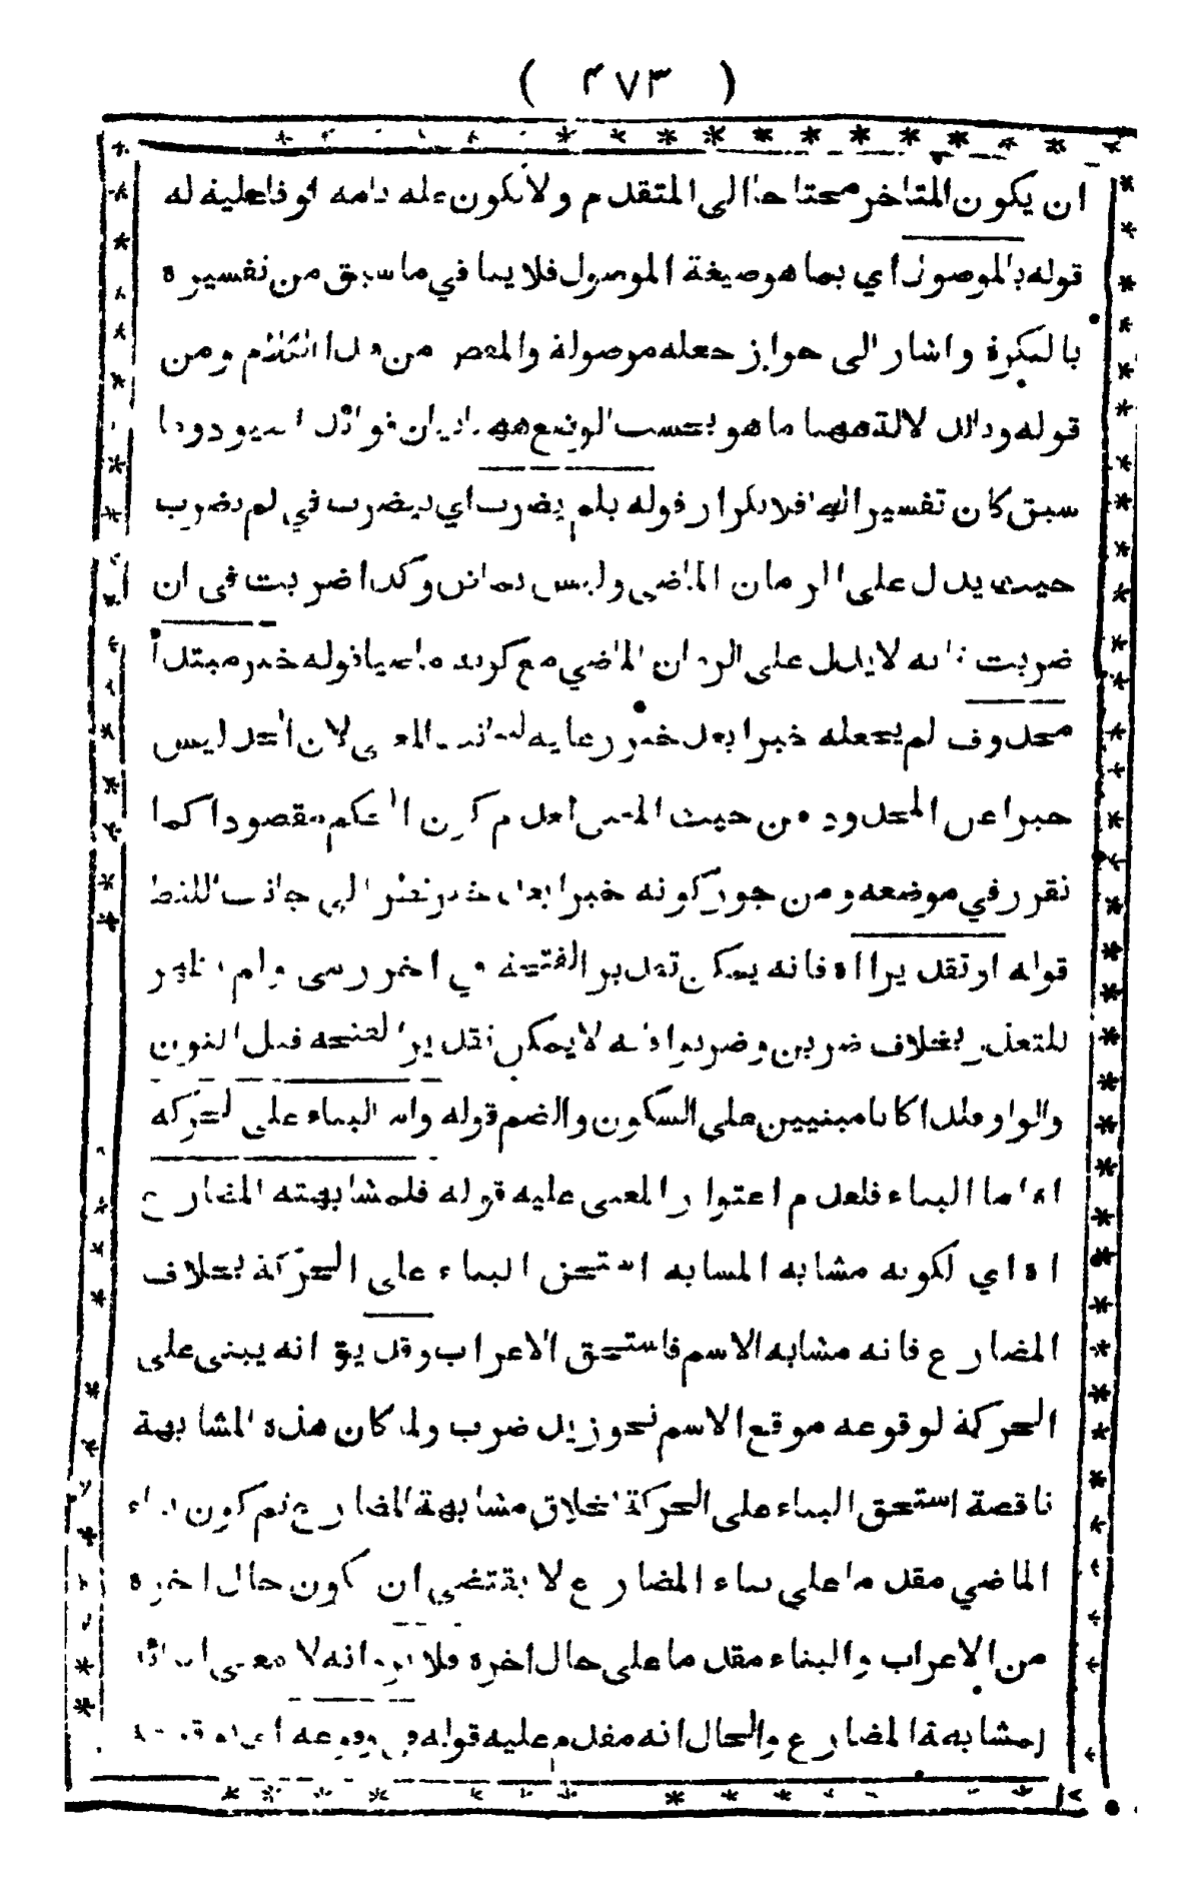 ( ۴۷۳ )
ان يكون المتاخر محتاجا الى المتقدم ولا يكون علة تامة او فاعلية له
قوله بالموصول اي بما هو صيغة الموصول فلا ينافي ما سبق من تفسيره
بالنكرة واشار الى جواز جعله موصولة من هذا ومن
قوله لالة ههنا ما هو بحسب الوضع
سبق كان تفسير الها فلا تكرار قوله بلم يضرب اي ليضرب في لم يضرب
حيث يدل على الزمان الماضي وليس بماض وكذا ضربت في ان
ضربت فانه لا يدل على الزمان الماضي مع كونه ماضيا قوله خبر مبتدأ
محذوف لم يجعله خبرا بعد خبر رعاية المعنى لان الحد ليس
خبرا عن المحدود من حيث المعنى لعدم كون الحكم مقصودا كما
تقرر في موضعه ومن جوز كونه خبرا بعد خبر نظر الى جانب اللفظ
قوله او تقديرا اه فانه يمكن تقدير الفتحة في اخر رمى ولم يظهر
للتعذر بخلاف ضربن وضربوا فانه لا يمكن تقدير الفتحة قبل النون
والواو فلذا كانا مبنيين على السكون والضم قوله وانه البناء على الحركة
اه اما البناء فلعدم اعتوار المعنى عليه قوله فلمشابهته المضارع
اه اي لكونه مشابه المشابه استحق البناء على الحركة بخلاف
المضارع فانه مشابه الاسم فاستحق الاعراب وقد يق انه يبنى على
الحركة لوقوعه موقع الاسم نحو زيد ضرب ولما كان هذه المشابهة
ناقصة استحق البناء على الحركة بخلاف مشابهة المضارع نعم كون بناء
الماضي مقدما على بناء المضارع لا يقتضي ان كون حال اخره
من الاعراب والبناء مقدما على حال اخره فلا يرد انه لا معنى
لمشابهة المضارع والحال انه مقدم عليه قوله في وقوعه